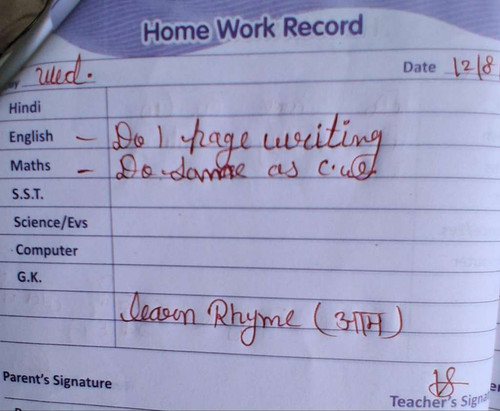 Home Work Record
Wed. Date 12/8
Hindi
English – Do 1 page writing
Maths – Do same as c.w.
S.S.T.
Science/Evs
Computer
G.K.
learn Rhyme (आम)
Parent's Signature
Teacher's Signa